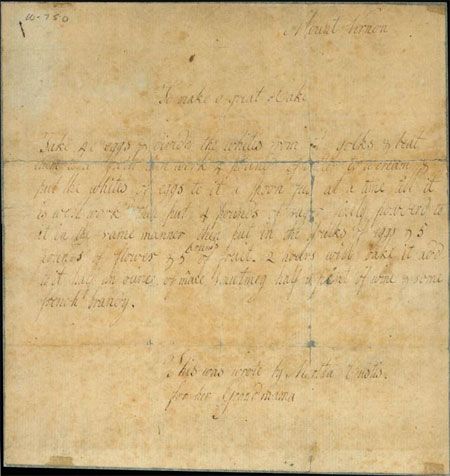 W-750
Mount Vernon
To make a great Cake
Take 40 eggs & divide the whites from the yolks & beat
them to a froth then work 4 pounds of butter to a cream &
put the whites of eggs to it a spoon full at a time till it
is well work'd then put 4 pounds of sugar finely powderd to
it in the same manner then put in the youlks of eggs & 5
pounds of flower & 5 pounds of fruit. 2 hours will bake it add
to it half an ounce of mace & nutmeg half a pint of wine & some
french brandy.
This was wrote by Martha Custis.
for her Grandmama